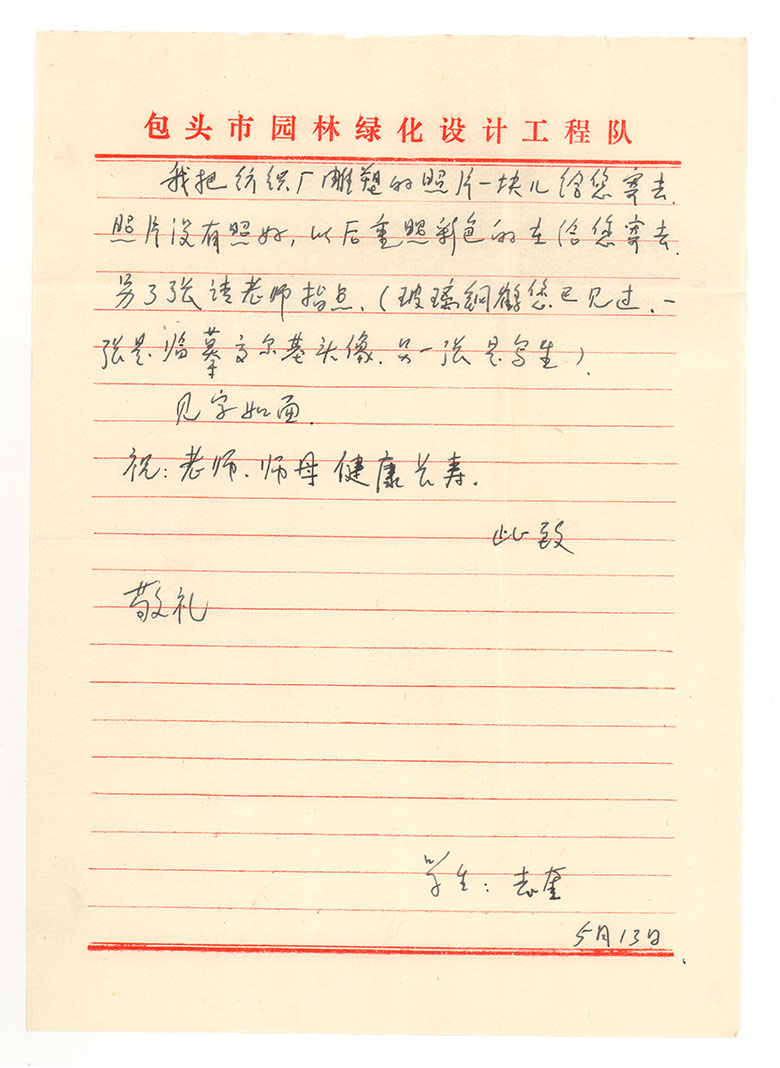 包头市园林绿化设计工程队
我把纺织厂雕塑的照片一块儿给您寄去.
照片没有照好, 以后重照彩色的在给您寄去.
另3张请老师指点. (玻璃钢鹤您已见过. 一
张是临摹高尔基头像. 另一张是写生).
见字如面.
祝: 老师. 师母健康长寿.
此致
敬礼
学生: 志奎
5月13日